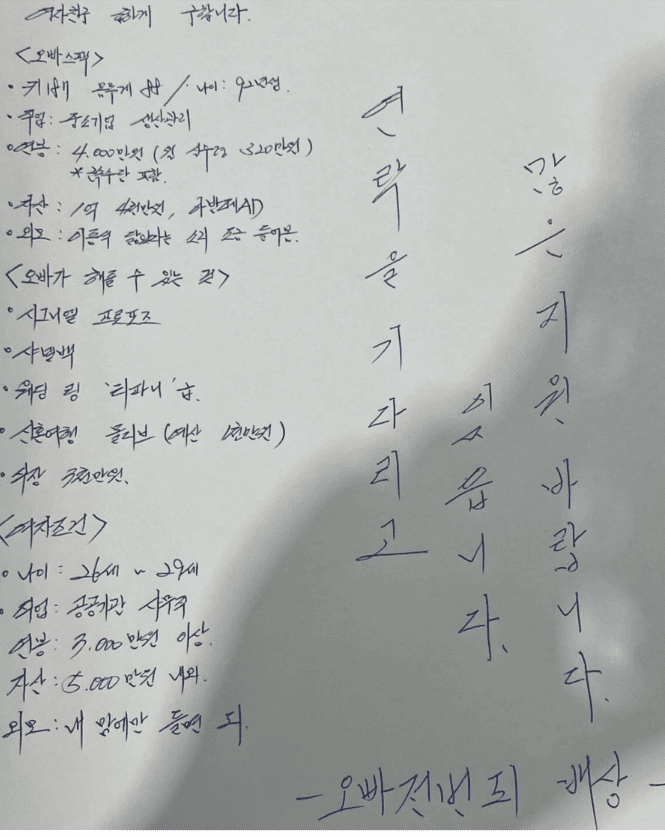 여자친구 급하게 구합니다.
<오빠스펙>
• 키 181 몸무게 88 / 나이: 92년생.
• 직업: 중소기업 생산관리
• 연봉: 4.000만원 (월 실수령 320만원)
* 특수란 포함.
• 자산: 1억 4천만원, 아반떼AD
• 외모: 이동욱 닮았다는 소리 조금 들어봄.
<오빠가 해줄 수 있는 것>
• 시그니엘 프로포즈
• 샤넬백
• 웨딩 링 '티파니'급.
• 신혼여행 몰디브 (예산 2천만원)
• 의장 5천만원.
<여자조건>
• 나이: 26세 ~ 29세
• 직업: 공공기관 사무직
연봉: 3.000만원 이상.
자산: 5.000만원 내외.
외모: 내 맘에만 들면 되.
많은 지원 바랍니다.
연락을 기다리고
있습니다.
- 오빠전번되 배상 -